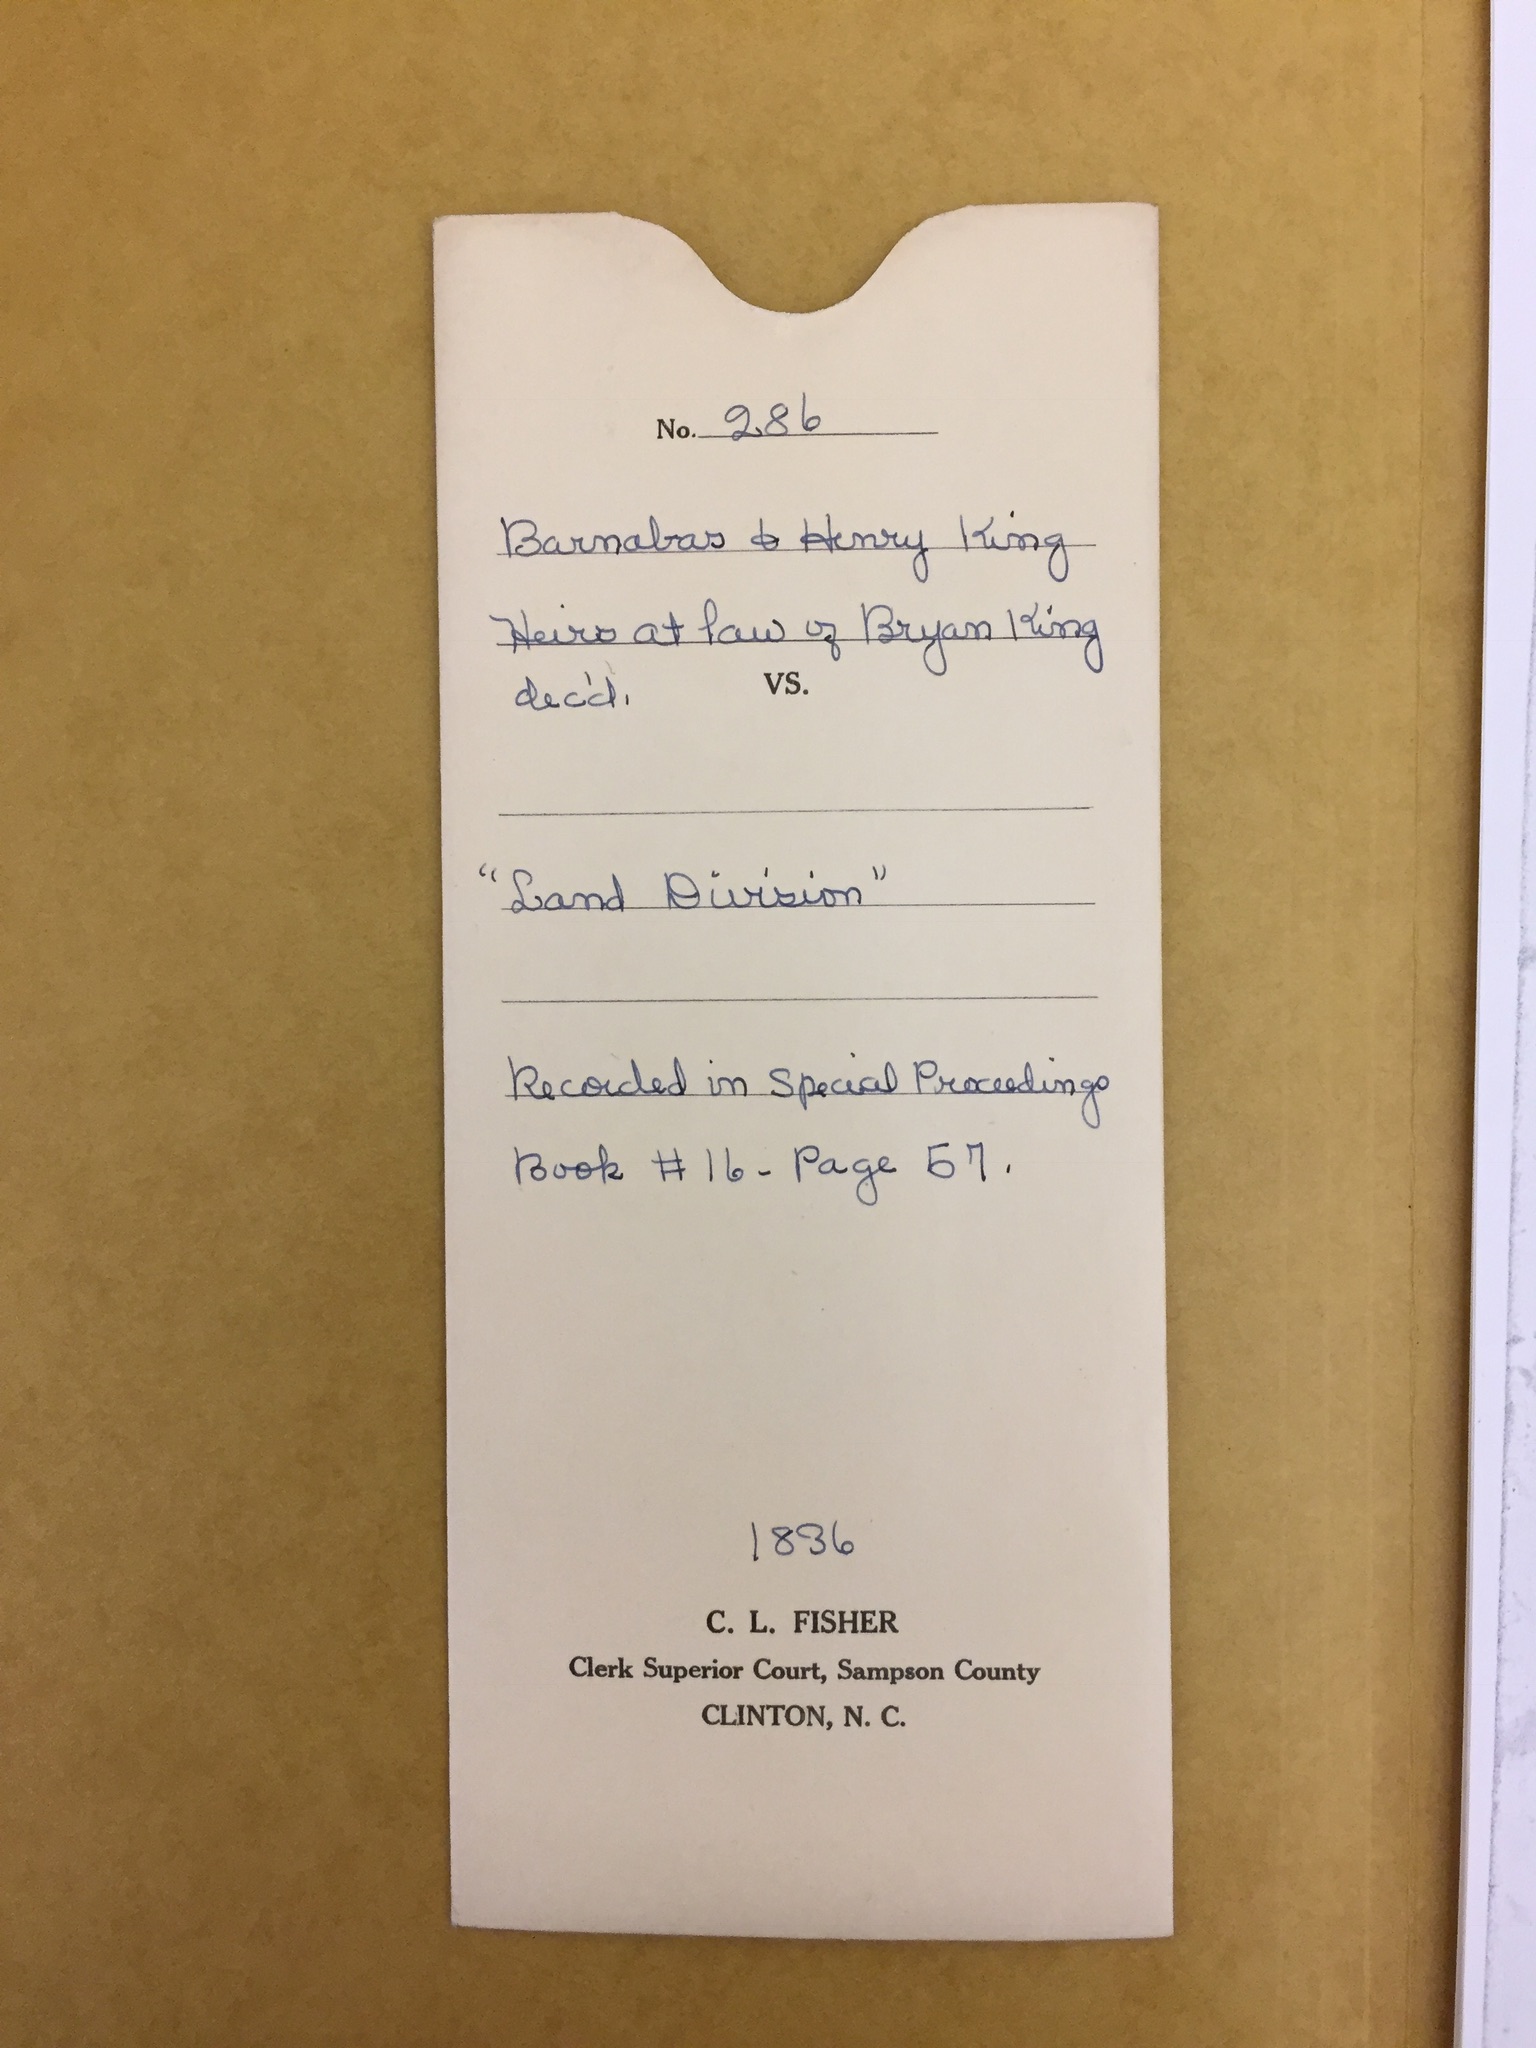 No. 286
Barnabas & Henry King
Heirs at law of Bryan King
dec'd. VS.
"Land Division"
Recorded in Special Proceedings
Book #16 - Page 57.
1836
C. L. FISHER
Clerk Superior Court, Sampson County
CLINTON, N. C.